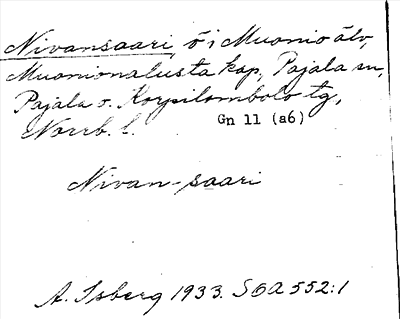 Nivansaari, ö i Muonio älv,
Muonionalusta kap., Pajala sn,
Pajala o. Korpilombolo tg,
Norrb. l.
Gn 11 (a6)
Nivan-saari
A. Isberg 1933. SOA 552:1